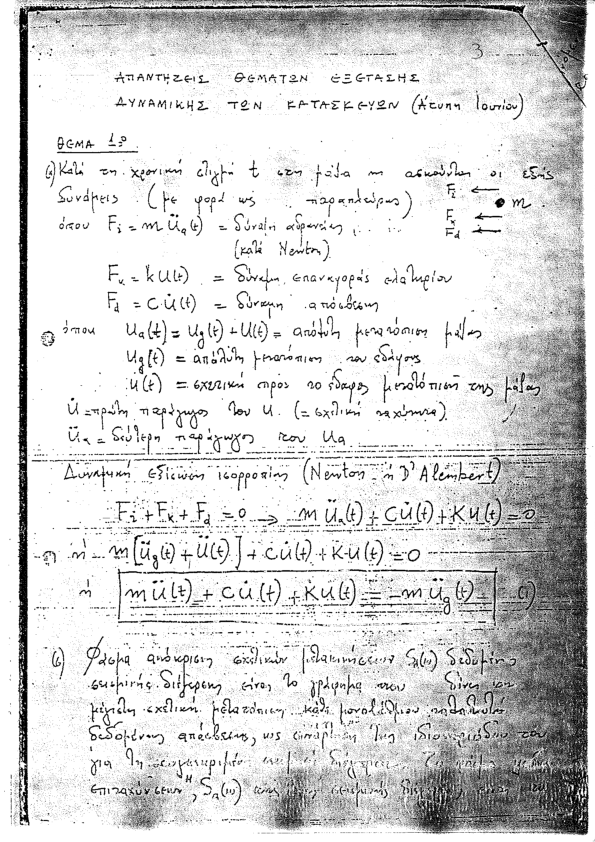 3
ΑΠΑΝΤΗΣΕΙΣ ΘΕΜΑΤΩΝ ΕΞΕΤΑΣΗΣ
ΔΥΝΑΜΙΚΗΣ ΤΩΝ ΚΑΤΑΣΚΕΥΩΝ (Άτυπη Ιουνίου)
ΘΕΜΑ 1ο
Κατά τη χρονική στιγμή t στη μάζα m ασκούνται οι εξής
δυνάμεις (με φορά ως παραπλεύρως)
Fi
m
Fκ
Fd
όπου Fi = m Üa(t) = δύναμη αδρανείας
(κατά Newton)
Fκ = kU(t) = δύναμη επαναφοράς ελατηρίου
Fd = C U̇(t) = δύναμη απόσβεσης
όπου Ua(t) = Ug(t) + U(t) = απόλυτη μετατόπιση μάζας
Ug(t) = απόλυτη μετατόπιση του εδάφους
U(t) = σχετική προς το έδαφος μετατόπιση της μάζας
U̇ = πρώτη παράγωγος του U. (= σχετική ταχύτητα)
Üa = δεύτερη παράγωγος του Ua
Δυναμική εξίσωση ισορροπίας (Newton ή D'Alembert)
Fi + Fκ + Fd = 0 → m Üa(t) + C U̇(t) + K U(t) = 0
ή m [Üg(t) + Ü(t)] + C U̇(t) + K U(t) = 0
ή m Ü(t) + C U̇(t) + K U(t) = -m Üg(t) (1)
(β) Φάσμα απόκρισης σχετικών μετακινήσεων δεδομένης
σεισμικής διέγερσης είναι το γράφημα που δίνει τη
μέγιστη σχετική μετατόπιση κάθε μονοβάθμιου ταλαντωτή
δεδομένης απόσβεσης, ως συνάρτηση της ιδιοπεριόδου του
για τη συγκεκριμένη διέγερση. Το
επιταχύνσεων σεισμικής